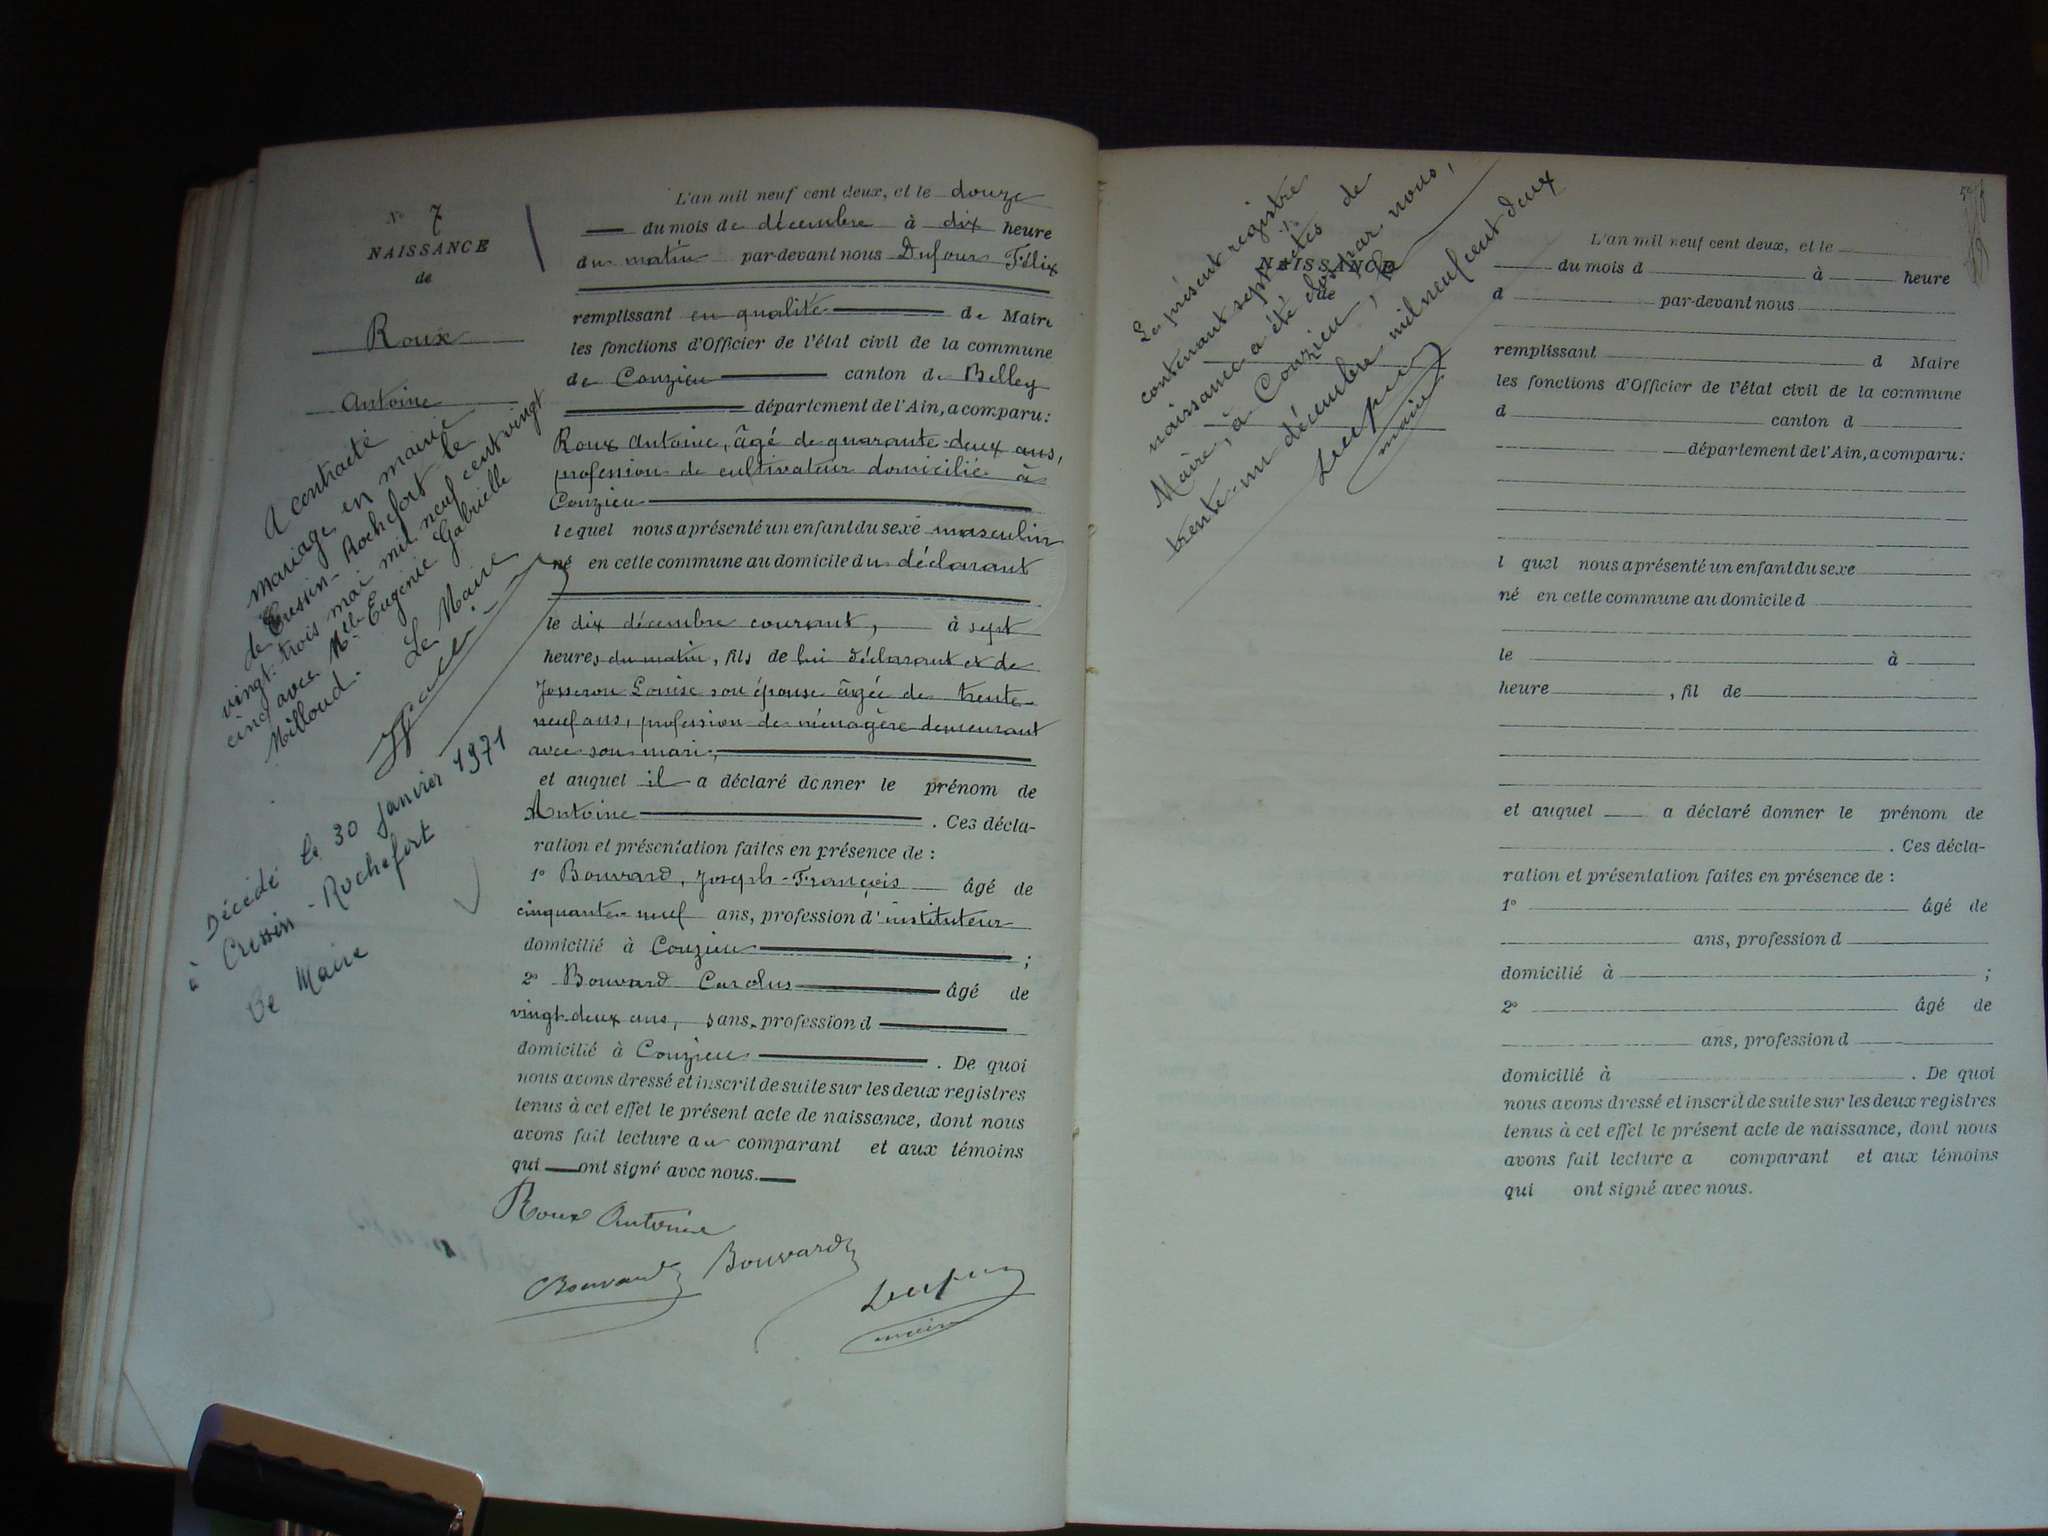 N° 7
NAISSANCE
de
Roux
Antoine
A contracté
mariage en mairie
de Cressin-Rochefort le
vingt-trois mai mil neuf cent vingt
cinq avec Mlle Eugénie Gabrielle
Milloud. Le Maire
Décédé le 30 janvier 1971
à Cressin-Rochefort
Le Maire
L'an mil neuf cent deux, et le douze
du mois de décembre à dix heure
du matin par-devant nous Dufour Félix
remplissant en qualité de Maire
les fonctions d'Officier de l'état civil de la commune
de Conzieu canton de Belley
département de l'Ain, a comparu :
Roux Antoine, âgé de quarante-deux ans,
profession de cultivateur domicilié à
Conzieu
lequel nous a présenté un enfant du sexe masculin
né en cette commune au domicile du déclarant
le dix décembre courant, à sept
heures du matin, fils de lui déclarant et de
Josseron Louise son épouse âgée de trente-
neuf ans, profession de ménagère demeurant
avec son mari ;
et auquel il a déclaré donner le prénom de
Antoine . Ces décla-
ration et présentation faites en présence de :
1° Bouvard, Joseph-François âgé de
cinquante-neuf ans, profession d'instituteur
domicilié à Conzieu ;
2° Bouvard Carolus âgé de
vingt-deux ans, sans profession d
domicilié à Conzieu . De quoi
nous avons dressé et inscrit de suite sur les deux registres
tenus à cet effet le présent acte de naissance, dont nous
avons fait lecture au comparant et aux témoins
qui ont signé avec nous.
Roux Antoine
CBouvard Bouvard
Dufour
maire
Le présent registre
contenant sept actes de
naissance a été clos par nous,
Maire, à Conzieu, le
trente-un décembre mil neuf cent deux
Dufour
maire
NAISSANCE
de
L'an mil neuf cent deux, et le
du mois d à heure
d par-devant nous
remplissant d Maire
les fonctions d'Officier de l'état civil de la commune
d canton d
département de l'Ain, a comparu :
l quel nous a présenté un enfant du sexe
né en cette commune au domicile d
le à
heure , fil de
et auquel a déclaré donner le prénom de
. Ces décla-
ration et présentation faites en présence de :
1° âgé de
ans, profession d
domicilié à ;
2° âgé de
ans, profession d
domicilié à . De quoi
nous avons dressé et inscrit de suite sur les deux registres
tenus à cet effet le présent acte de naissance, dont nous
avons fait lecture a comparant et aux témoins
qui ont signé avec nous.